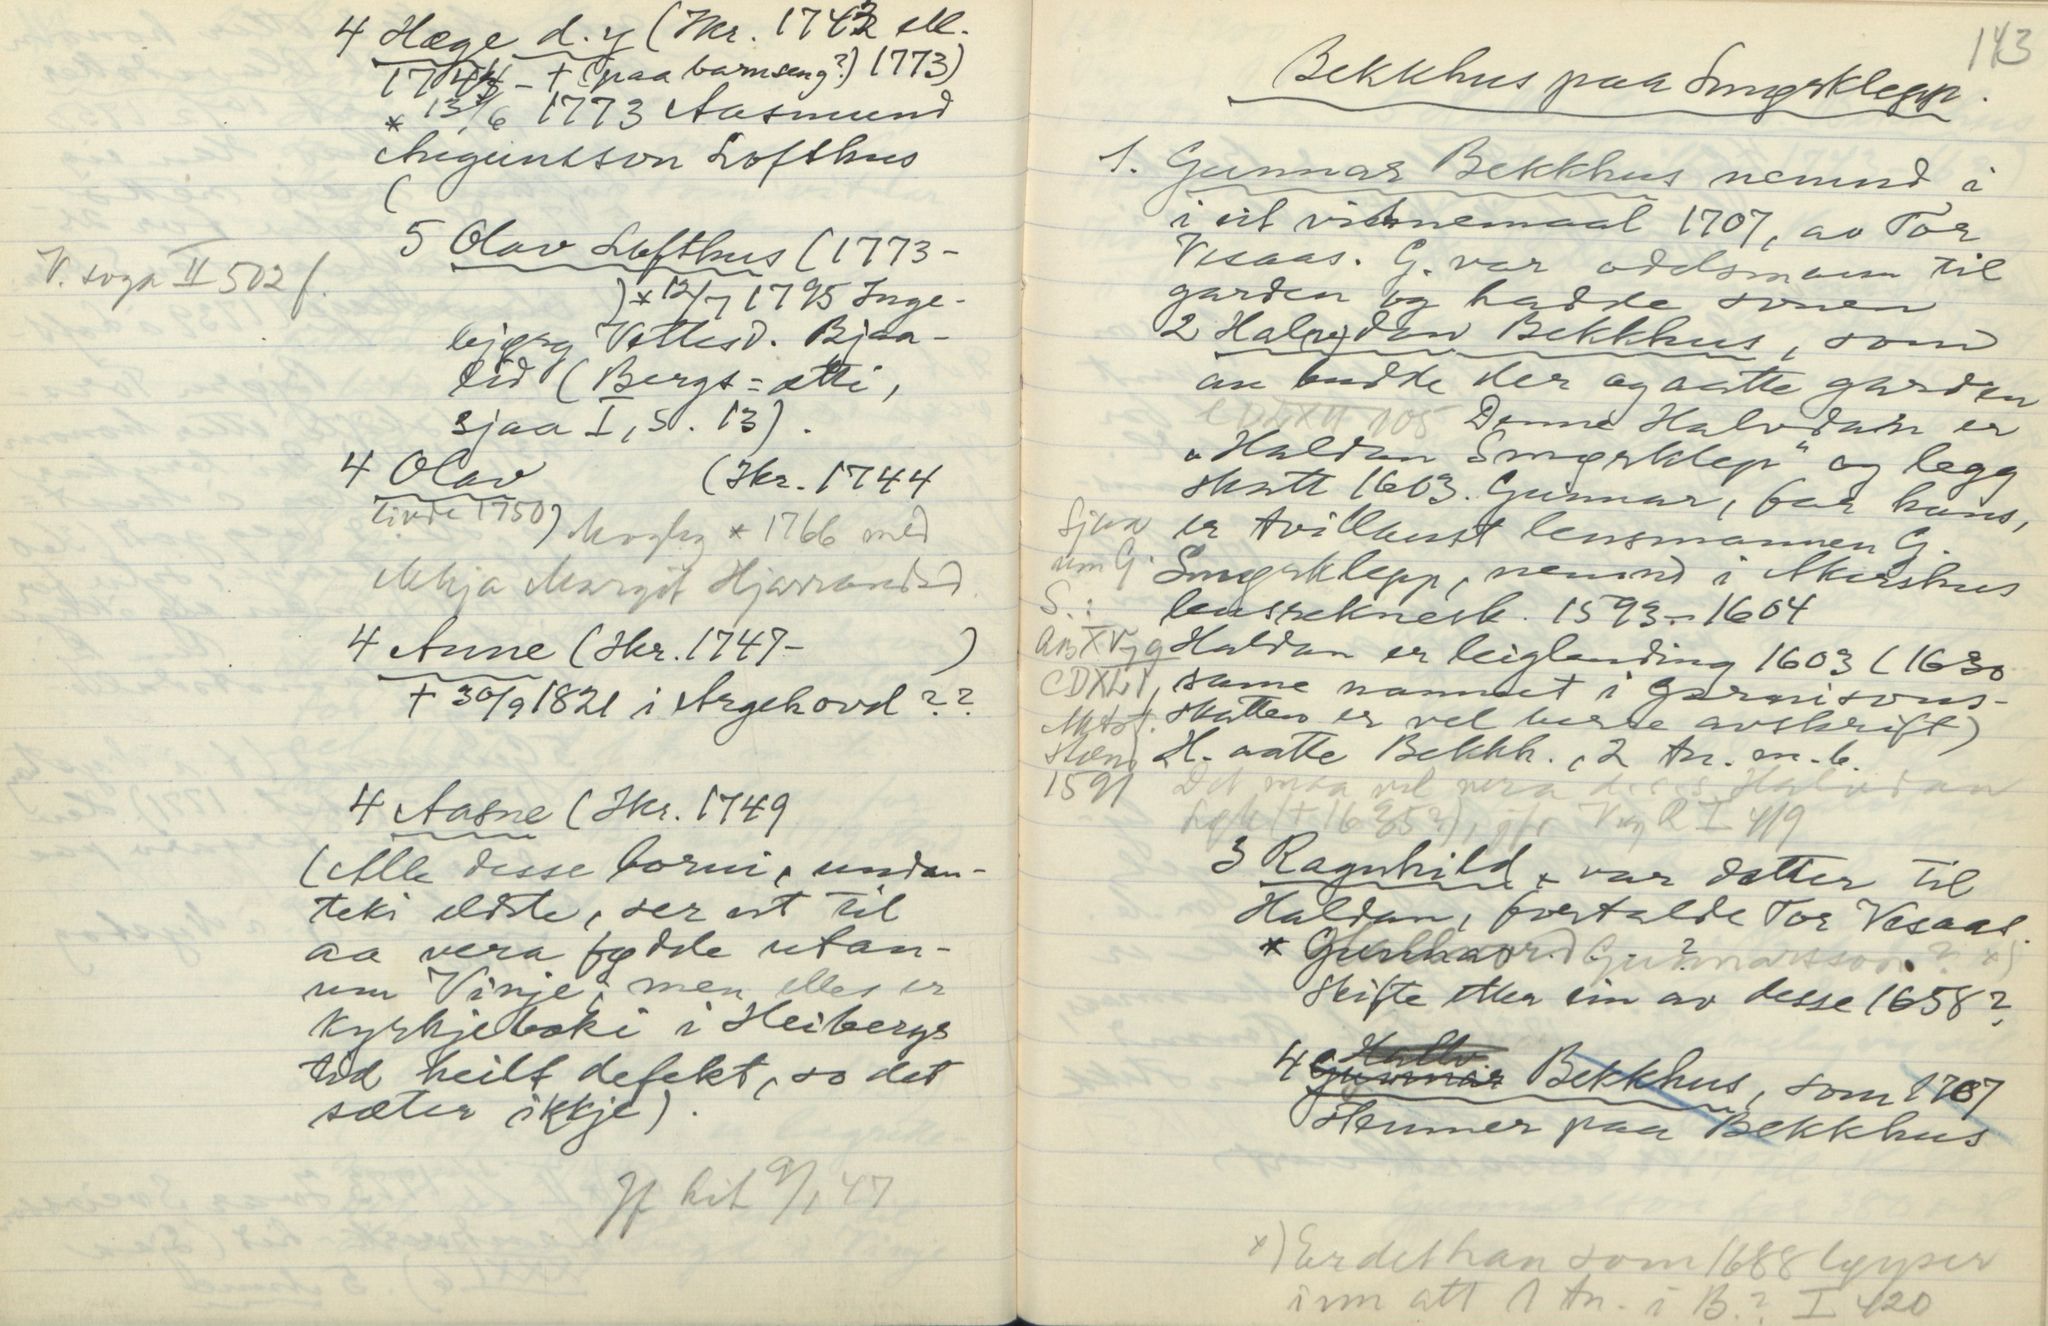 4 Hæge d. y (Ikr. 1743 ell.
1744 – † (paa barnseng?) 1773)
* 13/6 1773 Aasmund
Augunsson Lofthus
(
5 Olav Lofthus (1773–
V. soga II 502 f.
) * 12/7 1795 Inge-
bjørg Vettesd. Bjaa-
lid (Bergs-ætti,
sjaa I, s. 13).
4 Olav (Ikr. 1744
livde 1750) * 1766 med
Margit Hjarrandsd.
4 Anne (Ikr. 1747– )
† 30/9 1821 i Argehovd ??
4 Aasne (Ikr. 1749
(Alle desse borni, undan-
teki eldste, ser ut til
aa vera fødde utan-
um Vinje; men elles er
kyrkjeboki i Heibergs
tid heilt defekt, so det
sæter ikkje).
Jf hit 9/1 47
143
Bekkhus paa Smørklepp.
1. Gunnar Bekkhus nemnd i
i eit vitnemaal 1707, av Tor
Vesaas. G. var odelsmann til
garden og hadde sonen
2 Hal(v)dan Bekkhus, som
budde der og aatte garden
105 Denne Halvdan er
"Haldan Smørklep" og legg
skatt 1603. Gunnar, far hans,
er tvillaust lensmannen G.
Smørklepp, nemnd i Akershus
lensreknesk. 1593–1604
Haldan er leiglending 1603 (1630
same namnet i garnisons-
skatten er vel berre avskrift)
H. aatte Bekkh., 2 tn. m. b.
Sjaa
um G.
S.:
CDXLI,
1591
Det maa vel vera d. s. s. Halvdan
(† 1635?), jfr V og R I 419
3 Ragnhild, var dotter til
Haldan, fortalde Tor Vesaas.
* G. ? Gunnarsson? x)
Skifte etter ein av desse 1658?
4 Gunnar Bekkhus, som 1707
stemner paa Bekkhus
x) Er det han som 1688 lyser
inn att 1 tn. i B.? I 420